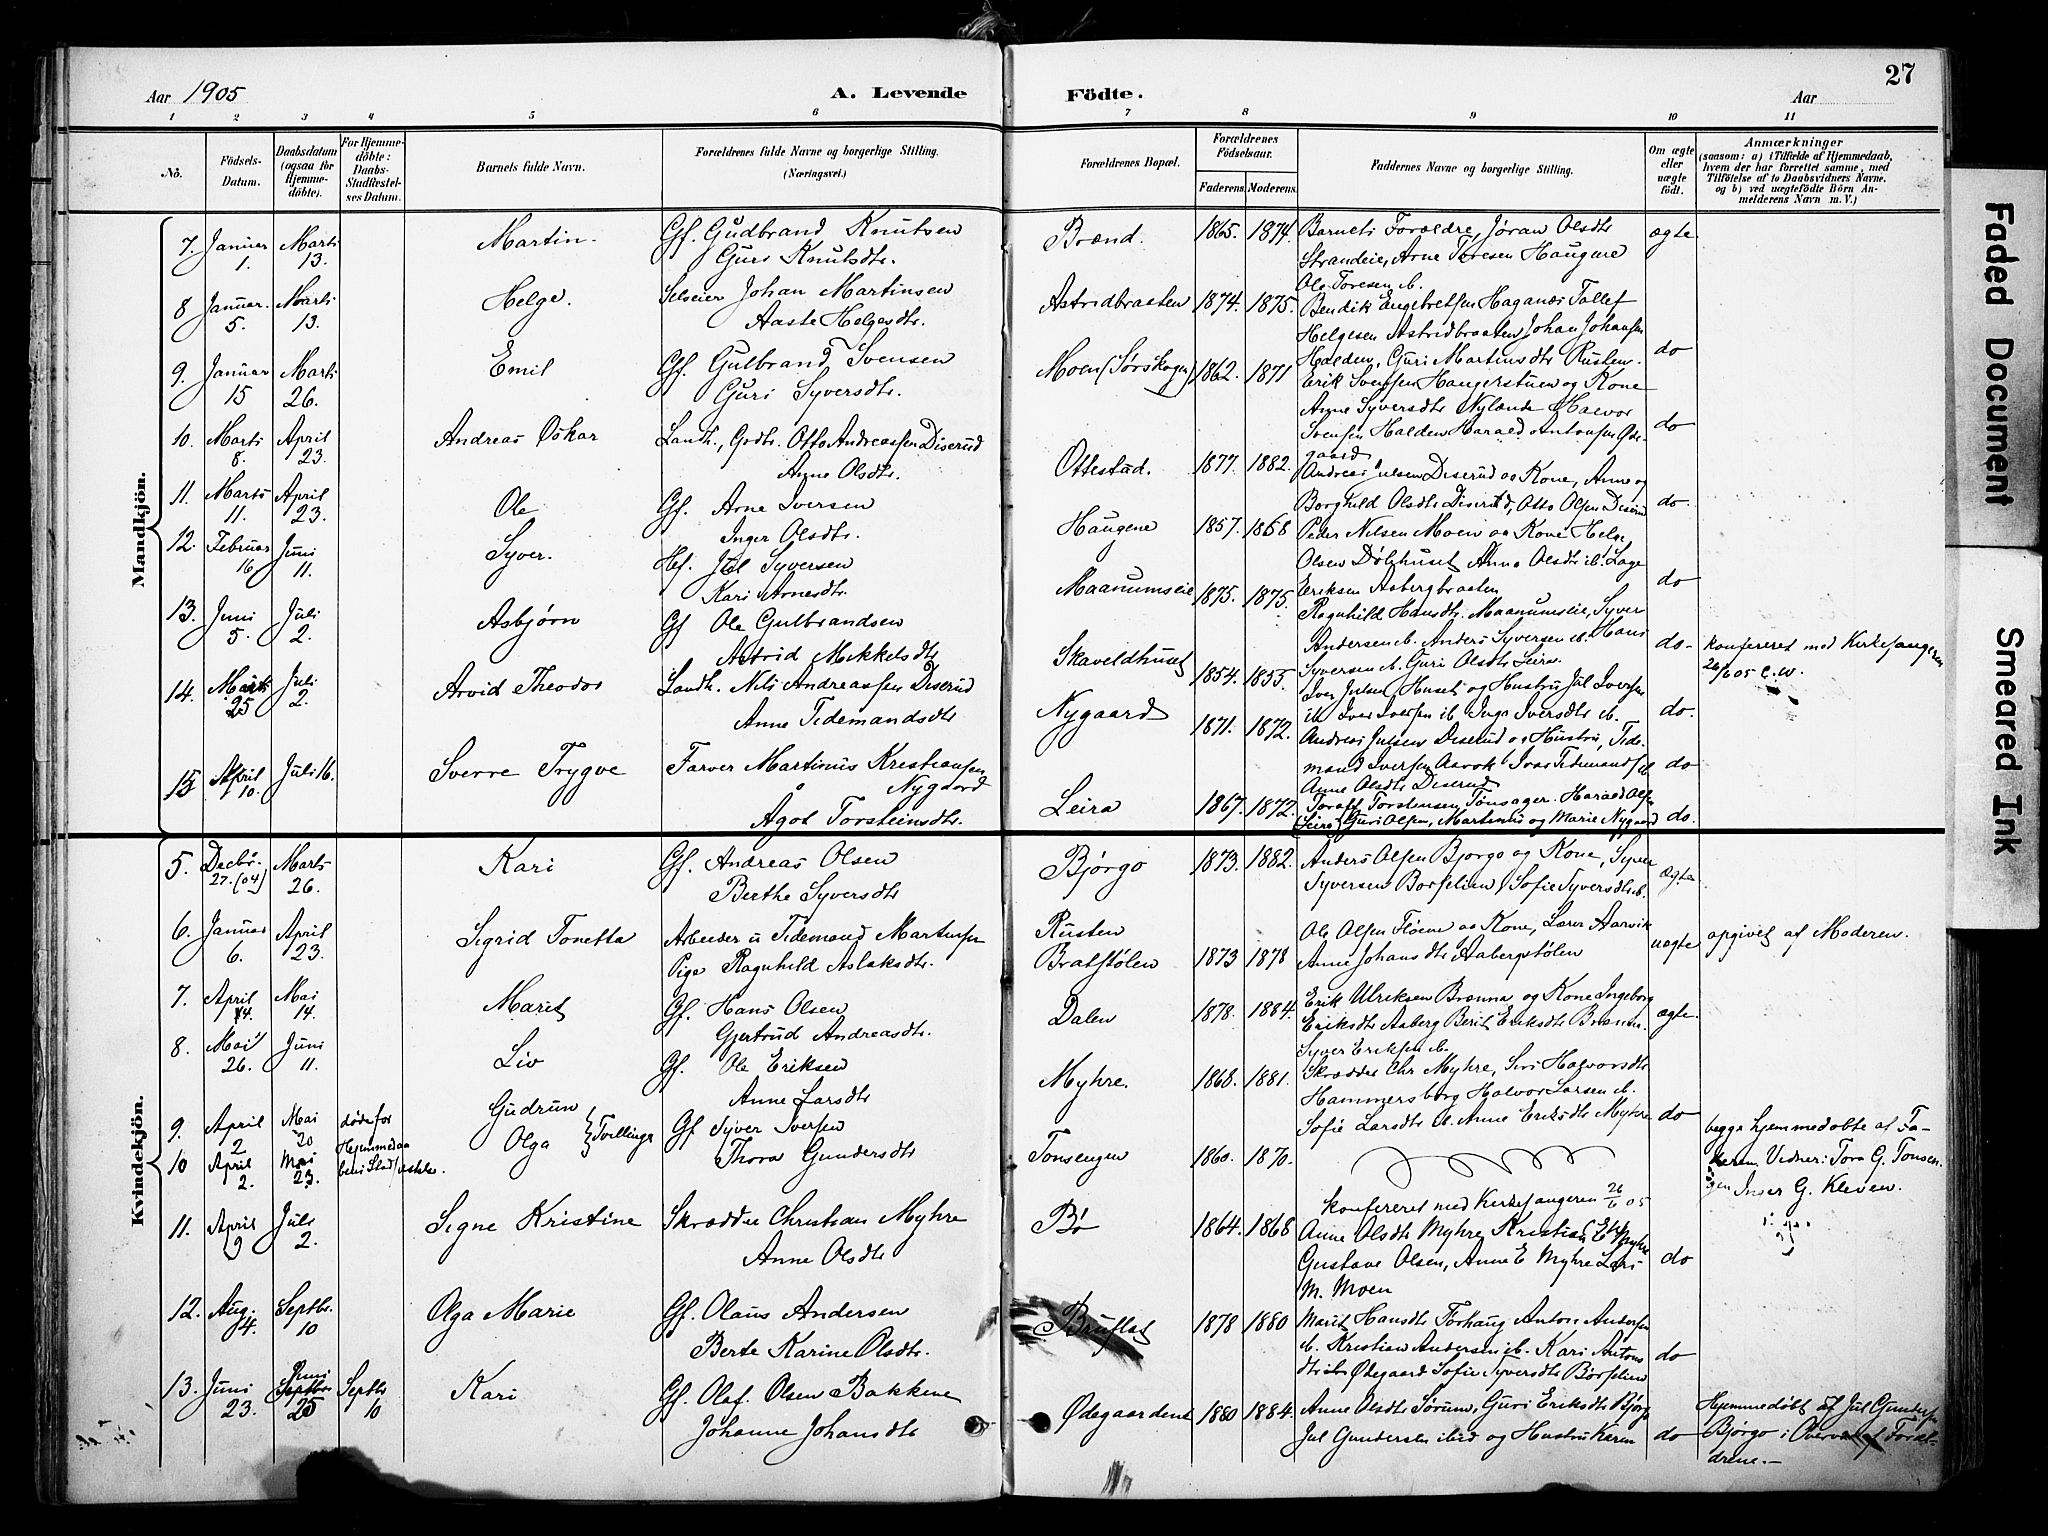 27
Aar 1905
A. Levende
Födte.
Aar
1 2 3 4 5 6 7 8 9 10 11
No.
Födsels-Datum.
Daabsdatum (ogsaa for Hjemmedöbte).
For Hjemmedöbte: Daabs-Stadfæstelses Datum.
Barnets fulde Navn.
Forældrenes fulde Navne og borgerlige Stilling. (Næringsvei.)
Forældrenes Bopæl.
Forældrenes Födselsaar.
Faderens. Moderens.
Faddernes Navne og borgerlige Stilling.
Om ægte eller uægte födt.
Anmærkninger
(saasom: a) i Tilfælde af Hjemmedaab, hvem der har forrettet samme, med Tilföielse af to Daabsvidners Navne. og b) ved uægtefödte Börn Anmelderens Navn m. V.)
Mandkjön.
7. Januar 1. Marts 13. Martin. Gf. Gudbrand Knutsen
Guri Knutsdtr. Brænd. 1865. 1874. Barnets Forældre, Jøran Olsdtr
Strandeie, Arne Toresen Haugene
Ole Toresen ib. ægte
8 Januar. 5. Marts 13. Helge. Selveier Johan Martinsen
Aaste Helgesdtr. Astridbraaten 1874. 1875. Bendik Engebretsen Haganæs Tollef
Helgesen Astridbraaten Johan Johansen
Halden, Guri Martinsdtr Rusten. do
9. Januar 15 Marts 26. Emil Gf. Gulbrand Svensen
Guri Syversdtr. Moen (Sørskogen) 1862. 1871 Erik Svensen Haugerstuen og Kone
Anne Syversdtr Nylænde Halvor
Svensen Halden Harald Antonsen Ødegaard do
10. Marts 8. April 23. Andreas Oskar Landh., Gbdr. Otto Andreassen Diserud
Anne Olsdtr. Ottestad. 1877. 1882. Andreas Julsen Diserud og Kone, Anne og
Borghild Olsdtr Diserud, Otto Olsen Diserud do.
11. Marts 11. April 23. Ole Gf. Arne Iversen
Inger Olsdtr. Haugene 1857. 1868 Peder Nilsen Moen og Kone Helge
Olsen Dølehuset Anne Olsdtr ib. Lage
Eriksen Aasbergbraaten do
12. Februar 16 Juni 11. Syver. Hf. Jul Syversen
Kari Arnesdtr. Maanumseie 1875. 1875. Ragnhild Hansdtr. Maanumseie, Syver
Andersen ib. Anders Syversen ib. Hans
Syversen ib. Guri Olsdtr Leira. do-
13. Juni 5. Juli 2. Asbjørn Gf Ole Gulbrandsen
Astrid Mikkelsdtr Skaveldhuset 1854. 1855. Iver Julsen Huset og Hustru Jul Iversen
ib Iver Iversen ib Inga Iversdtr ib. do. konfereret med Kirkesangeren
26/6 05 C.W.
14. Marts 25 Juli 2. Arvid Theodor Landh. Nils Andreassen Diserud
Anne Tidemandsdtr Nygaard 1871. 1872. Andreas Julsen Diserud og Hustru, Tidemand Iversen Aavok Ivar Tidemandsen ib
Anne Olsdtr Diserud do
15 April 10. Juli 16. Sverre Trygve Farver Martinus Kristiansen
Nygaard
Agot Torsteinsdtr. Leira 1867. 1872. Toralf Torstensen Tønsager. Harald Olsen
Leira, Guri Olsen, Martinus og Marie Nygaard do.
Kvindekjön.
5. Decbr. 27. (04) Marts 26. Kari Gf. Andreas Olsen
Berthe Syversdtr Bjørgo 1873. 1882. Anders Olsen Bjørgo og Kone, Syver
Syversen Børselien, Sofie Syversdtr ib. ægte
6. Januar 6. April 23. Sigrid Tonetta Arbeider u Tidemand Martinsen
Pige Ragnhild Aslaksdtr. Rusten
Bratstølen 1873 1878 Ole Olsen Fløene og Kone, Lærer Aarvik
Anne Johansdtr Aabergstølen uægte opgivet af Moderen.
7. April 14. Mai 14. Marit Gf. Hans Olsen
Gjertrud Andreasdtr. Dalen 1878. 1884. Erik Ulriksen Brenna og Kone Ingeborg
Eriksdtr Aaberg Berit Eriksdtr Brenna.
Syver Eriksen ib. ægte.
8. Mai 26. Juni 11. Liv Gf. Ole Eriksen
Anne Larsdtr Myhre. 1868. 1881. Skrædder Chr Myhre, Siri Halvorsdtr
Hammersborg Halvor Larsen ib.
Sofie Larsdtr ib. Anne Eriksdtr Myhre do
9. April 2 Mai 20 døde før
Hjemmedaabens Stadfæstelse Gudrun
10 April 2. Mai 23. Olga } Tvillinge Gf Syver Iversen
Thora Gundersdtr Tonsengen 1860. 1870. begge hjemmedøbte af Faderen. Vidner: Tora G. Tonsengen Inger G. Kleven.
konfereret med Kirkesangeren 26/6 05
11. April 9 Juli 2. Signe Kristine Skrædder Christian Myhre
Anne Olsdtr Bø 1864. 1868 Anne Olsdtr Myhre Kristian E Myhre
Gustave Olsen, Anne E Myhre Lars
M. Moen do
12. Aug. 4. Septbr. 10 Olga Marie Gf. Olaus Andersen
Berte Karine Olsdtr. Bruflat 1878 1880 Marit Hansdtr Torhaug Anton Andersen
ib. Kristian Andersen ib. Kari Antonsdtr ib Ødegaard Sofie Syversdtr Børselien do
13. Juni 23. Juni Septbr 25 Septbr 10 Kari Gf. Olaf Olsen Bakkene
Johanne Johansdtr Ødegaardene 1880 1884. Anne Olsdtr Sørum, Guri Eriksdtr Bjørgo
Jul Gundersen ibid og Hustru Karen do Hjemmedøbt af Jul Gundersen
Bjørgo i Overvær af Forældrene.-
Faded Document
Smeared Ink